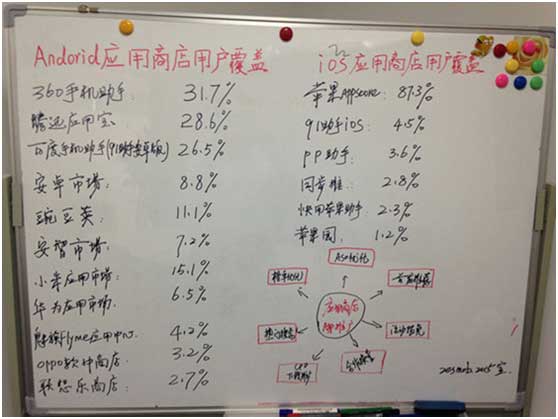 Andorid应用商店用户覆盖
360手机助手: 31.7%
腾讯应用宝 28.6%
百度手机助手(91助手安卓版) 26.5%
安卓市场: 8.8%
豌豆荚: 11.1%
安智市场: 7.2%
小米应用市场: 15.1%
华为应用市场: 6.5%
魅族flyme应用中心: 4.2%
oppo软件商店: 3.2%
联想乐商店: 2.7%
iOS应用商店用户覆盖
苹果Appscore: 87.3%
91助手iOS: 4.5%
pp助手: 3.6%
同步推: 2.8%
快用苹果助手: 2.3%
苹果园: 1.2%
ASO优化
榜单优化
首页推荐
应用商店
热门搜索
活动
合作
CPD
下载
2015 宝